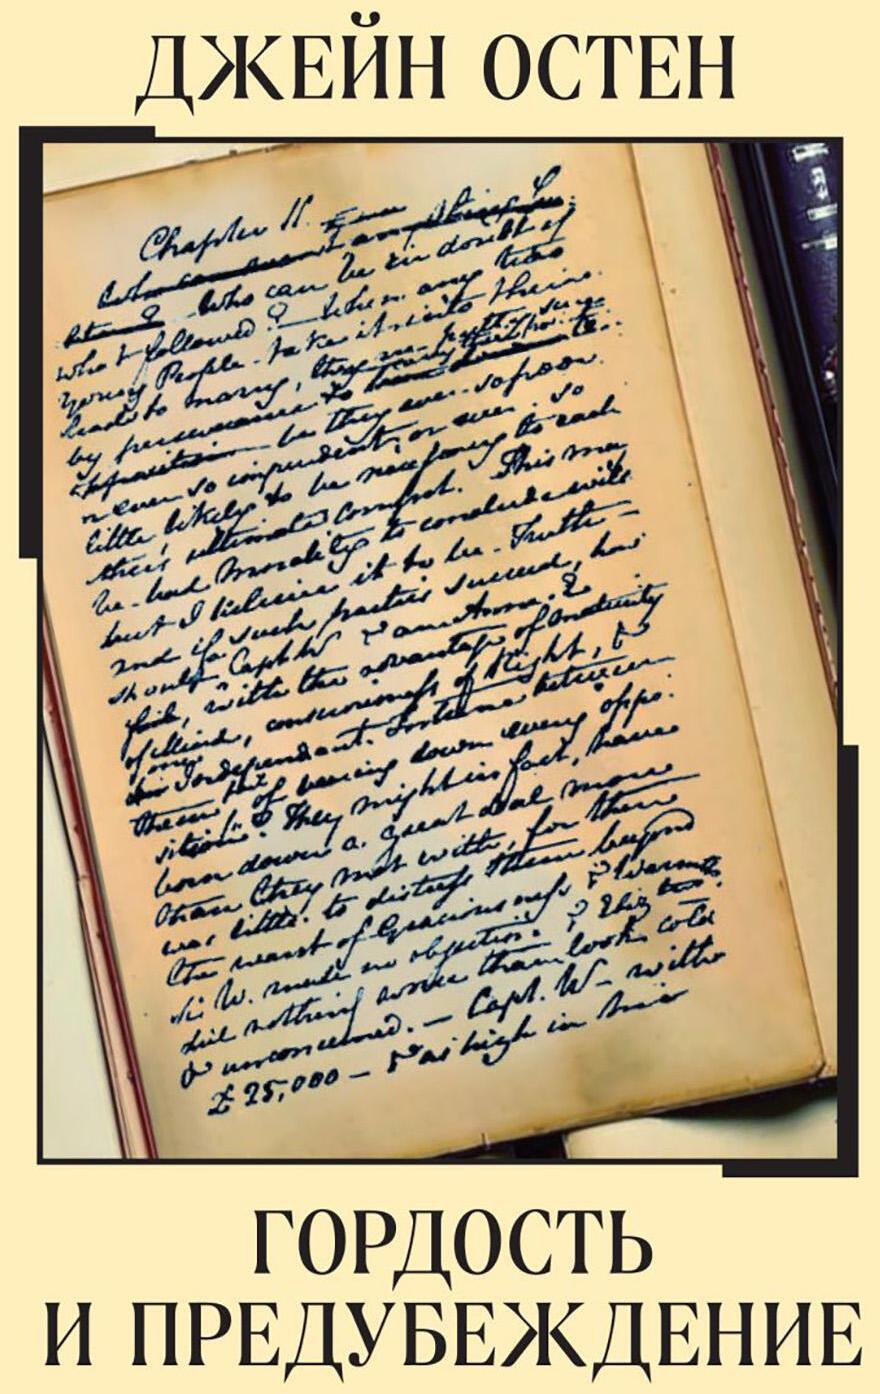 ДЖЕЙН ОСТЕН
Chapter 11.
Who can be in doubt of
what followed? When any two
Young People take it into their
heads to marry, they are
by perseverance to
be they ever so poor
or ever so imprudent, or ever so
little likely to be necessary to each
other's ultimate comfort. This may
be bad Morality to conclude with
but I believe it to be Truth—
and if such parties succeed, how
should Capt W & an Anne E
fail, with the advantage of Maturity
of Mind, consciousness of Right, &
one Independant Fortune between
them, fail of bearing down every oppo
sition? They might in fact, have
born down a great deal more
than they met with, for there
was little to distress them beyond
the want of Graciousness & Warmth
Sir W. made no objection, & Eliz:
did nothing worse than look cold
& unconcerned. — Capt. W— with
£25,000 — & as high in his
ГОРДОСТЬ
И ПРЕДУБЕЖДЕНИЕ